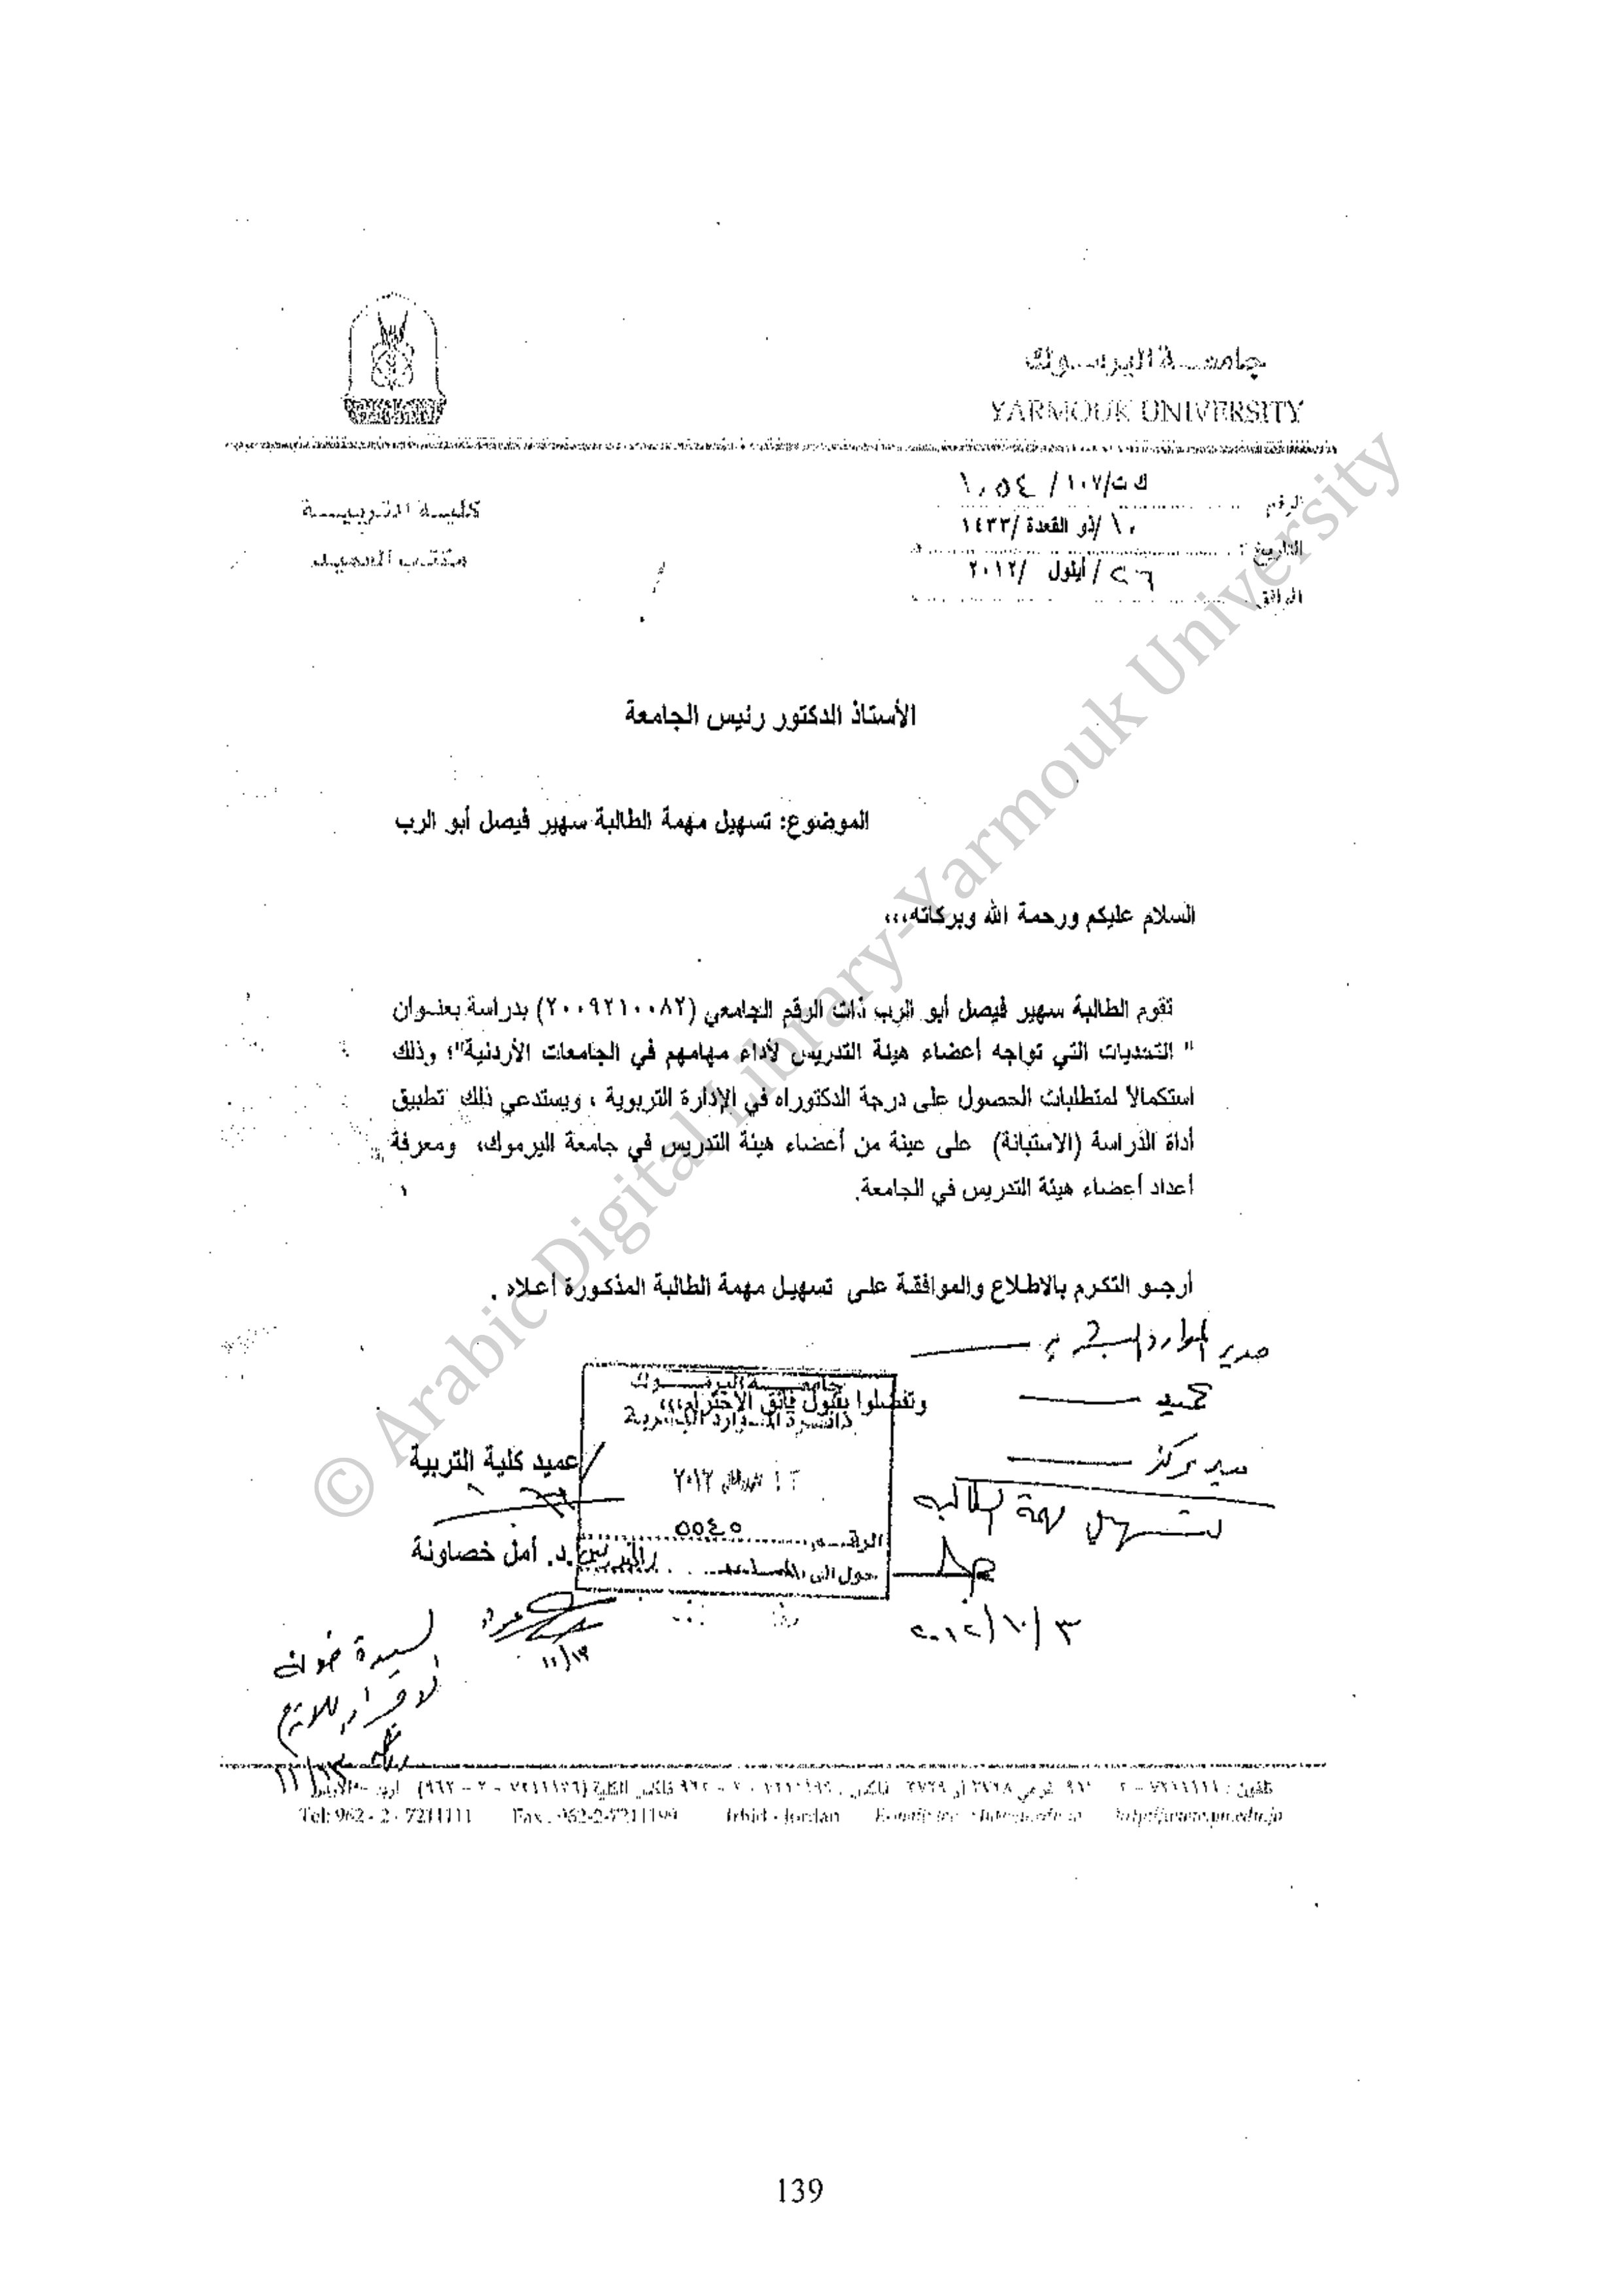 جامعة اليرموك
YARMOUK UNIVERSITY
كلية التربية
مكتب العميد
الرقم ك ت/١٠٧/ ١٠٥٤
التاريخ ١٠/ذو القعدة/١٤٣٣
الموافق ٢٦/أيلول /٢٠١٢
الأستاذ الدكتور رئيس الجامعة
الموضوع: تسهيل مهمة الطالبة سهير فيصل أبو الرب
السلام عليكم ورحمة الله وبركاته،،،
تقوم الطالبة سهير فيصل أبو الرب ذات الرقم الجامعي (٢٠٠٩٢١٠٠٨٢) بدراسة بعنوان
" التحديات التي تواجه أعضاء هيئة التدريس لأداء مهامهم في الجامعات الأردنية"؛ وذلك
استكمالا لمتطلبات الحصول على درجة الدكتوراه في الإدارة التربوية ، ويستدعي ذلك تطبيق
أداة الدراسة (الاستبانة) على عينة من أعضاء هيئة التدريس في جامعة اليرموك، ومعرفة
أعداد أعضاء هيئة التدريس في الجامعة.
أرجو التكرم بالاطلاع والموافقة على تسهيل مهمة الطالبة المذكورة أعلاه .
مدير الموارد البشرية
وتفضلوا بقبول فائق الاحترام،،،
جامعة اليرموك
دائرة الموارد البشرية
٢٠١٢
الرقم ٥٥٤٥
حول الى
عميد كلية التربية
أ.د. أمل خصاونة
مدير مركز
لتسهيل مهمة الطالبة
٢٠١٢/١٠/٣
السيدة
Tel: 962 - 2 - 7211111 Fax : 962-2-7211199 Irbid - Jordan
139
© Arabic Digital Library-Yarmouk University